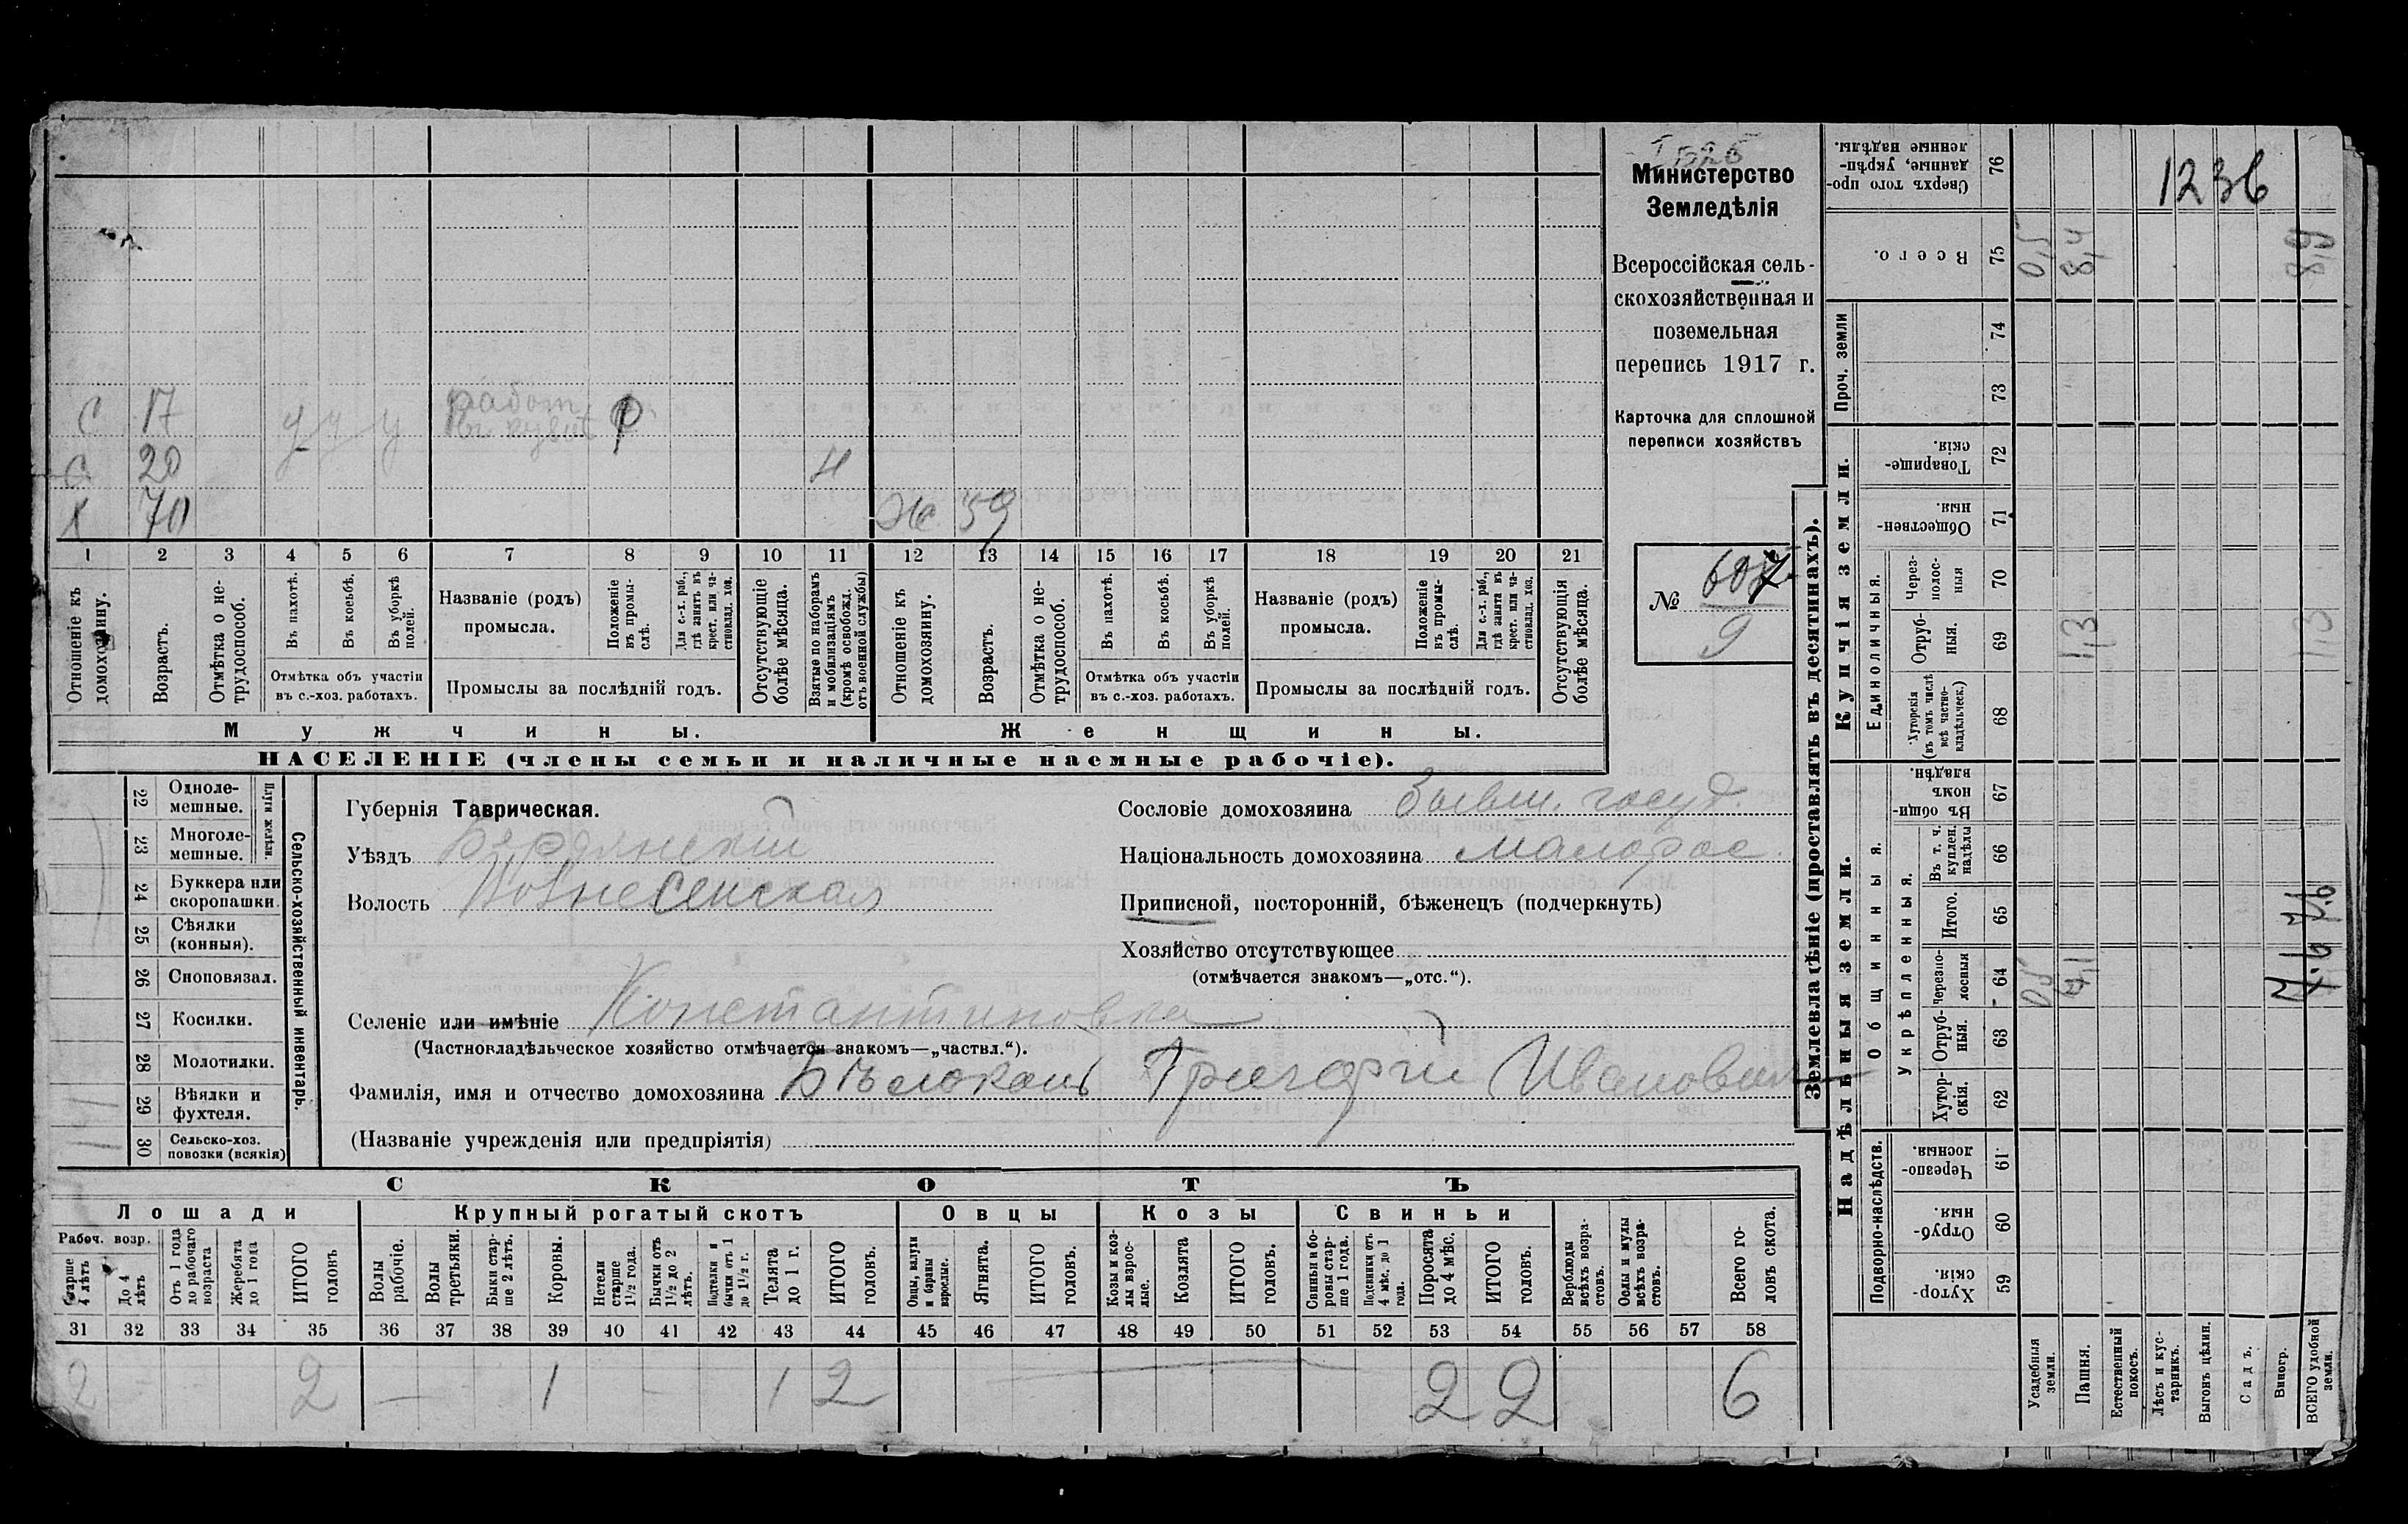 С 17 у у у работ. Р
С 20
Х 70 Ж 59
1 2 3 4 5 6 7 8 9 10 11 12 13 14 15 16 17 18 19 20 21
Отношеніе къ домохозяину.
Возрастъ.
Отмѣтка о не-трудоспособ.
Въ пахотѣ.
Въ косьбѣ.
Въ уборкѣ полей.
Отмѣтка объ участіи
въ с.-хоз. работахъ.
Названіе (родъ)
промысла.
Положеніе въ промы-слѣ.
Для с.-х. раб., гдѣ занятъ въ крест. или ча-стновлад. хоз.
Промыслы за послѣдній годъ.
Отсутствующіе болѣе мѣсяца.
Взятые по наборамъ и мобилизаціямъ (кромѣ освобожд. отъ военной службы)
Отношеніе къ домохозяину.
Возрастъ.
Отмѣтка о не-трудоспособ.
Въ пахотѣ.
Въ косьбѣ.
Въ уборкѣ полей.
Отмѣтка объ участіи
въ с.-хоз. работахъ.
Названіе (родъ)
промысла.
Положеніе въ промы-слѣ.
Для с.-х. раб., гдѣ занята въ крест. или ча-стновлад. хоз.
Промыслы за послѣдній годъ.
Отсутствующія болѣе мѣсяца.
Мужчины.
Женщины.
НАСЕЛЕНІЕ (члены семьи и наличные наемные рабочіе).
Министерство
Земледѣлія
Всероссійская сель-
скохозяйственная и
поземельная
перепись 1917 г.
Карточка для сплошной
переписи хозяйствъ
№ 607
9
22 Одноле-мешные.
23 Многоле-мешные.
Плуги желѣзн.
24 Буккера или скоропашки.
25 Сѣялки (конныя).
26 Сноповязал.
27 Косилки.
28 Молотилки.
29 Вѣялки и фухтеля.
30 Сельско-хоз. повозки (всякія)
Сельско-хозяйственный инвентарь.
Губернія Таврическая.
Уѣздъ Бердянскій
Волость Вознесенская
Сословіе домохозяина бывш. госуд.
Національность домохозяина малорос.
Приписной, посторонній, бѣженецъ (подчеркнуть)
Хозяйство отсутствующее
(отмѣчается знакомъ—„отс.“).
Селеніе или имѣніе Константиновка
(Частновладѣльческое хозяйство отмѣчается знакомъ—„частвл.“).
Фамилія, имя и отчество домохозяина Бѣлоконь Григорій Иванович
(Названіе учрежденія или предпріятія)
СКОТЪ
Лошади
Крупный рогатый скотъ
Овцы
Козы
Свиньи
Рабоч. возр.
Старше 4 лѣтъ
До 4 лѣтъ
Отъ 1 года до рабочаго возраста
Жеребята до 1 года
ИТОГО головъ
Волы рабочіе.
Волы третьяки.
Быки стар-ше 2 лѣтъ.
Коровы.
Нетели старше 1½ года.
Бычки отъ 1½ до 2 лѣтъ.
Подтелки и бычки отъ 1 до 1½ г.
Телята до 1 г.
ИТОГО головъ.
Овцы, валухи и бараны взрослые.
Ягнята.
ИТОГО головъ.
Козы и коз-лы взрос-лые.
Козлята
ИТОГО головъ.
Свиньи и бо-ровы стар-ше 1 года.
Подсвинки отъ 4 мѣс. до 1 года.
Поросята до 4 мѣс.
ИТОГО головъ.
Верблюды всѣхъ возра-стовъ.
Ослы и мулы всѣхъ возра-стовъ.
Всего го-ловъ скота.
31 32 33 34 35 36 37 38 39 40 41 42 43 44 45 46 47 48 49 50 51 52 53 54 55 56 57 58
2 2 — 1 — 1 2 2 2 6
Землевладѣніе (проставлять въ десятинахъ).
Купчія земли.
Надѣльныя земли.
Сверхъ того про-данные, укрѣп-ленные надѣлы. 76
1236
Всего. 75 0,5 8,4 8,9
Проч. земли 74
73
Товарище-скія. 72
Обществен-ныя. 71
Единоличныя.
Через-полос-ныя 70
Отруб-ныя. 69 1,3 1,3
Хуторскія (въ томъ числѣ всѣ частно-владѣльческ.) 68
Общинныя.
Въ общи-номъ владѣн. 67
Укрѣпленныя.
Въ т. ч. куплен. надѣлы 66
Итого. 65
Черезпо-лосныя 64 0,5 7,1 7.6 7.6
Отруб-ныя. 63
Хутор-скія. 62
Подворно-наслѣдств.
Черезпо-лосныя. 61
Отруб-ныя. 60
Хутор-скія. 59
Усадебныя земли.
Пашня.
Естественный покосъ.
Лѣсъ и кус-тарникъ.
Выгонъ цѣлин.
Садъ.
Виногр.
ВСЕГО удобной земли.